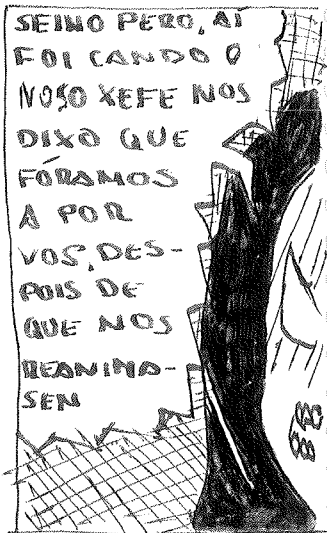 SEINO PERO, AÍ
FOI CANDO O
NOSO XEFE NOS
DIXO QUE
FÓRAMOS
A POR
VOS, DES-
POIS DE
QUE NOS
REANIMA-
SEN